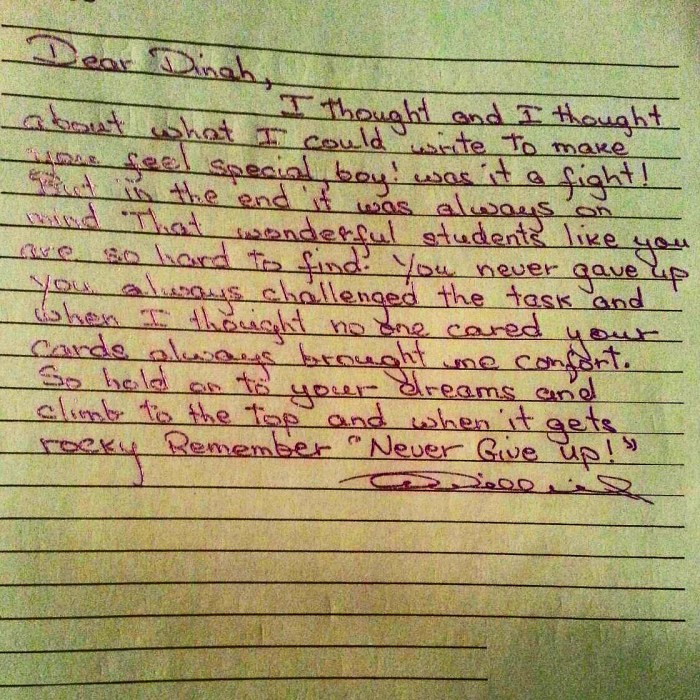 Dear Dinah,
I thought and I thought
about what I could write to make
you feel special boy! was it a fight!
But in the end it was always on
mind That wonderful students like you
are so hard to find. You never gave up
you always challenged the task and
when I thought no one cared your
cards always brought me comfort.
So hold on to your dreams and
climb to the top and when it gets
rocky Remember "Never Give up!"